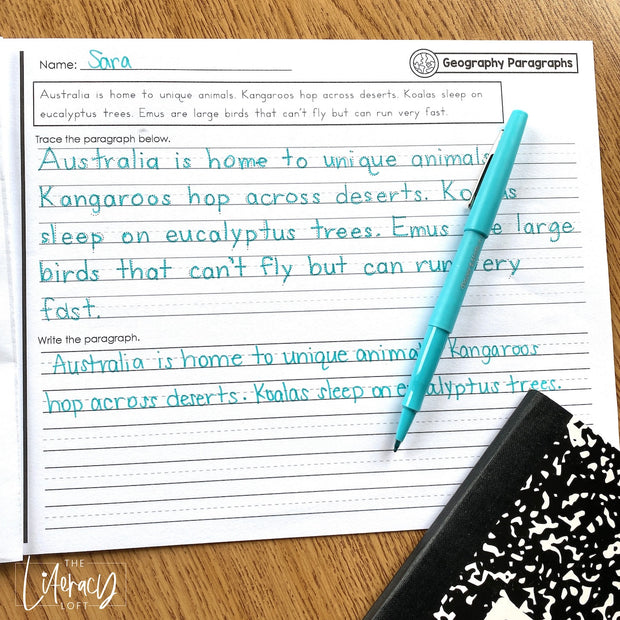 Name: Sara
Geography Paragraphs
Australia is home to unique animals. Kangaroos hop across deserts. Koalas sleep on
eucalyptus trees. Emus are large birds that can't fly but can run very fast.
Trace the paragraph below.
Australia is home to unique animals
Kangaroos hop across deserts. Koalas
sleep on eucalyptus trees. Emus are large
birds that can't fly but can run very
fast.
Write the paragraph.
Australia is home to unique animals Kangaroos
hop across deserts. Koalas sleep on eucalyptus trees.
THE
Literacy
LOFT